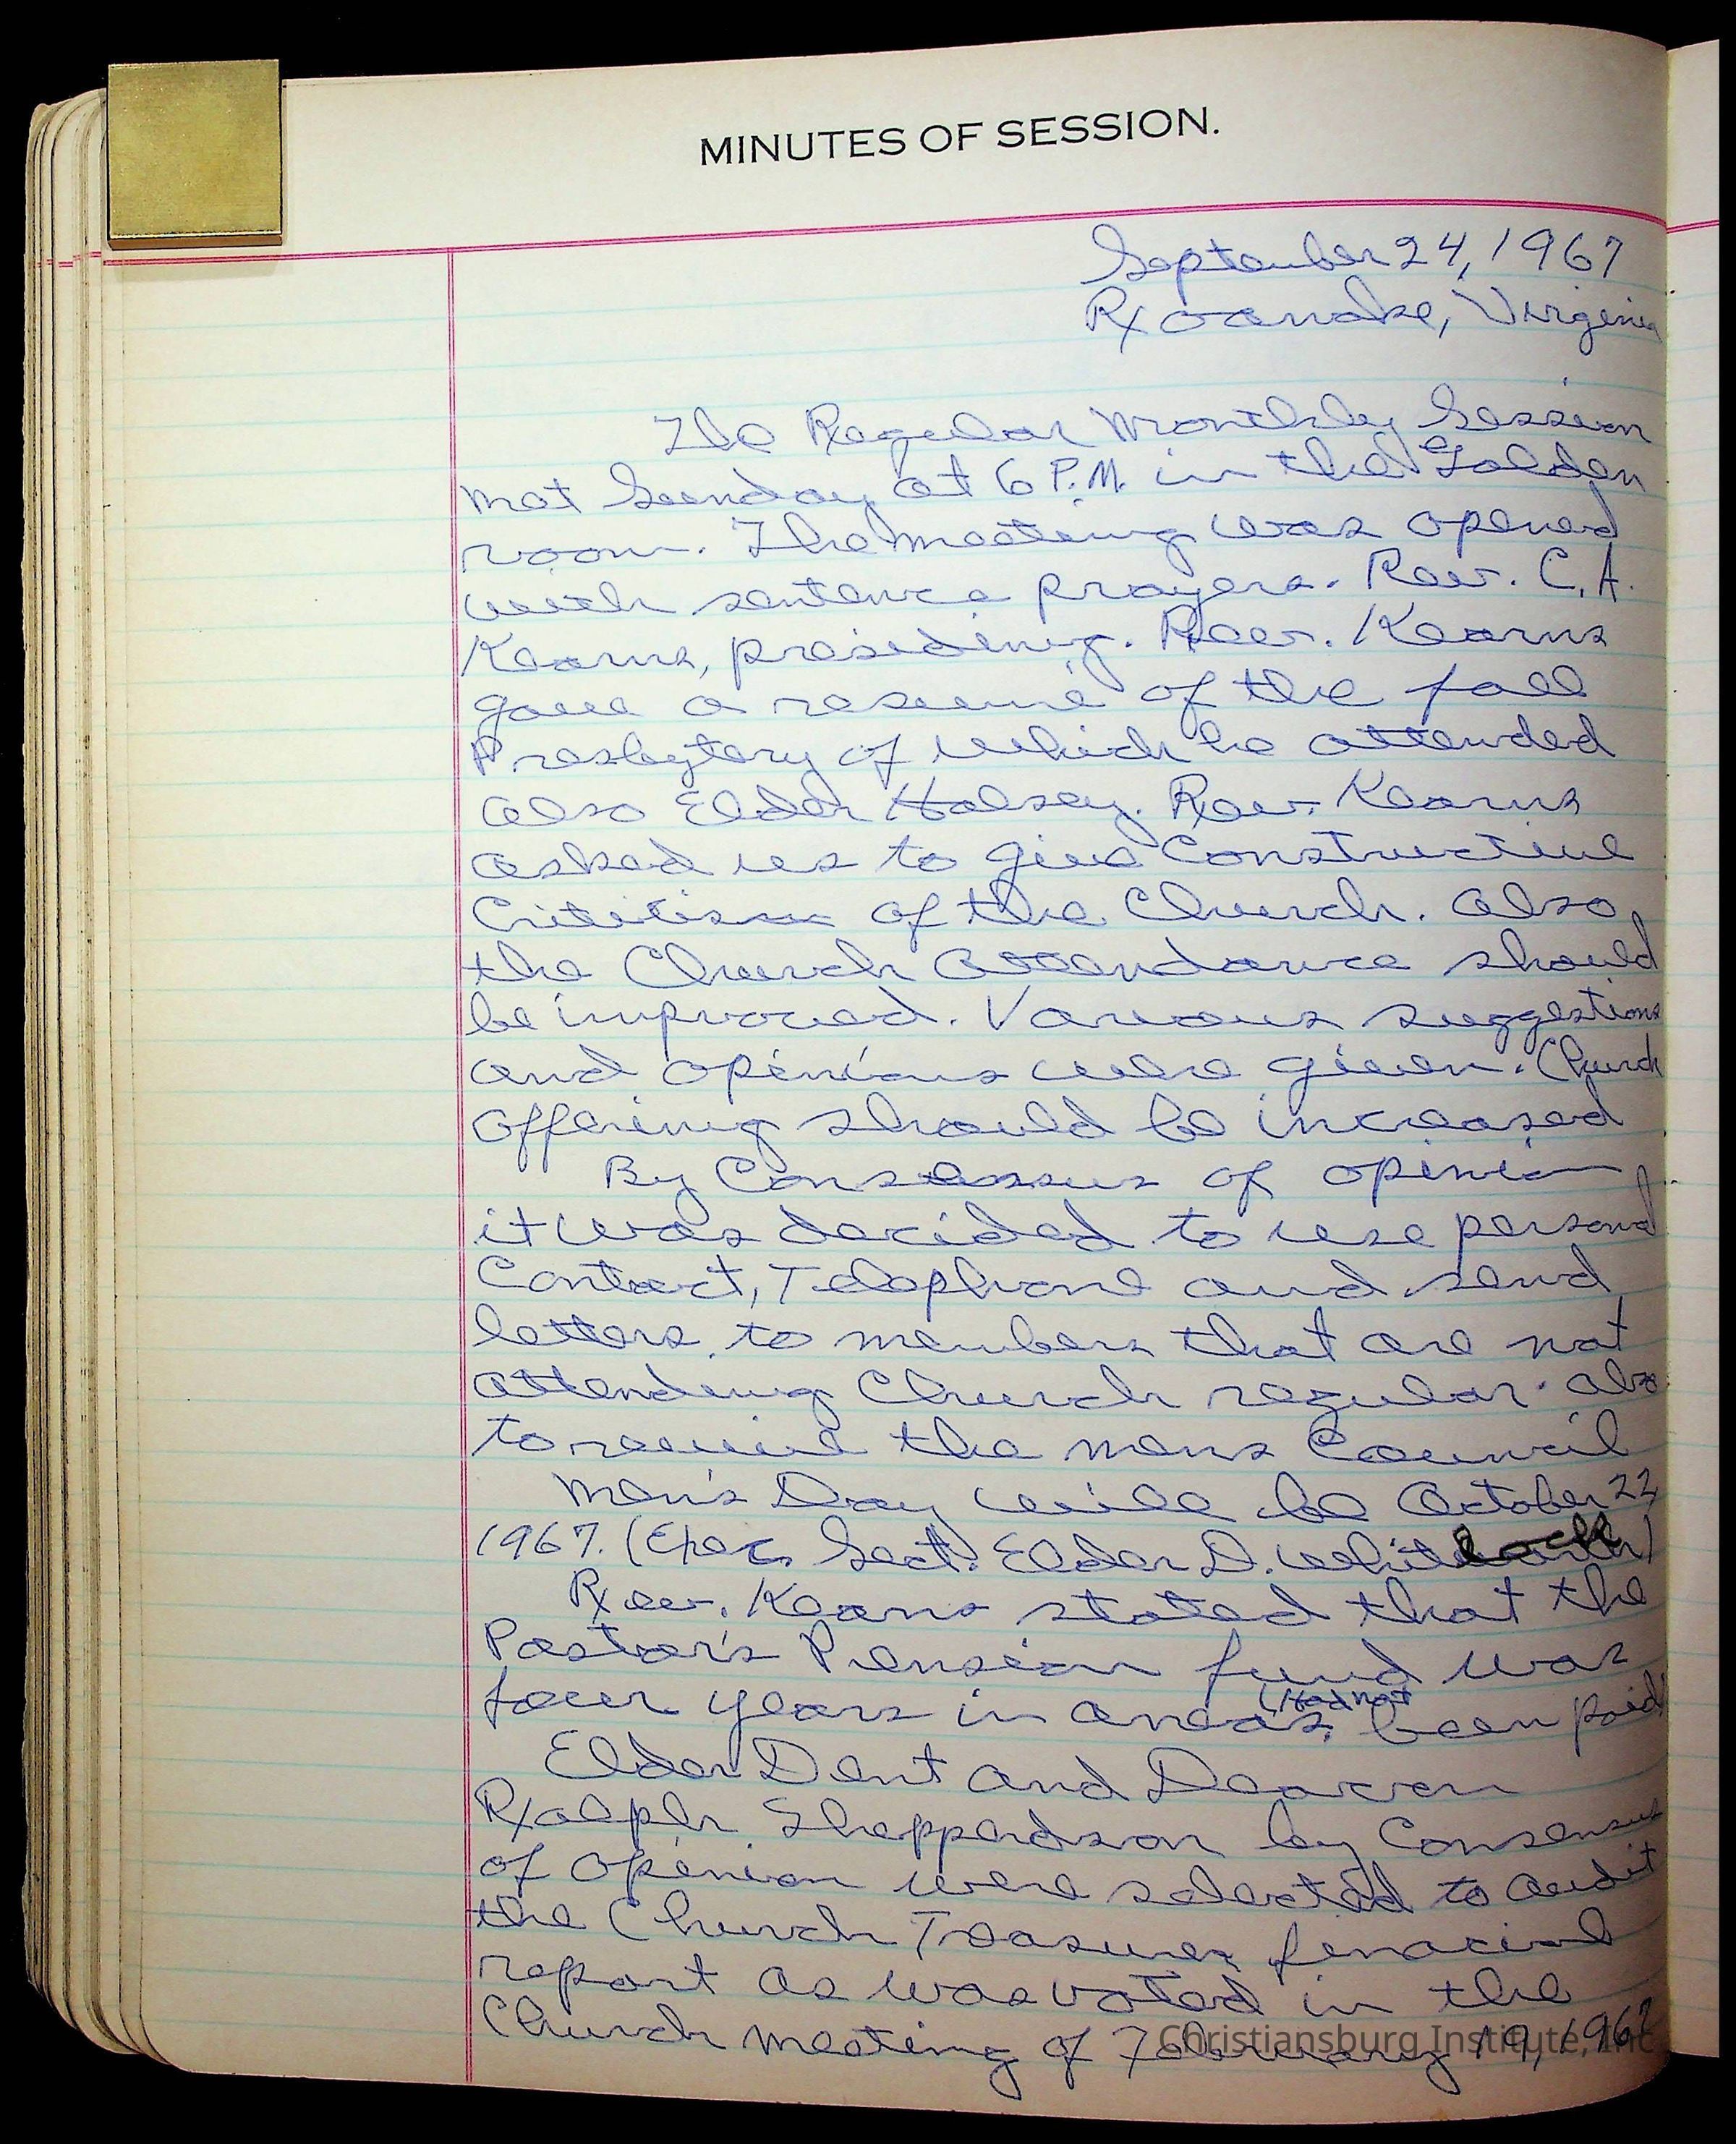 MINUTES OF SESSION.
September 24, 1967
Roanoke, Virginia
The Regular Monthly Session
met Sunday at 6 P.M. in the Golden
room. The meeting was opened
with sentence prayers. Rev. C. A.
Kearns, presiding. Rev. Kearns
gave a resumé of the fall
Presbytery of which he attended
also Elder Halsey. Rev. Kearns
asked us to give Constructive
Critism of the Church. Also
the Church Attendance should
be improved. Various suggestions
and opinions were given. Church
offering should be increased
By Consensus of opinion
it was decided to use personal
Contact, Telephone and send
letters to members that are not
attending Church regular. also
to revive the mens Council
Men's Day will be October 22,
1967. (Exec. Sect. Elder D. Whitlock)
Rev. Kearns stated that the
Pastor's Pension fund was
four years in areas. (Had not been paid)
Elder Dent and Deacon
Ralph Sheppardson by Consensus
of opinion were selected to audit
the Church Treasurer finacial
report as was voted in the
Church meeting of February 19, 1967
Christiansburg Institute, Inc